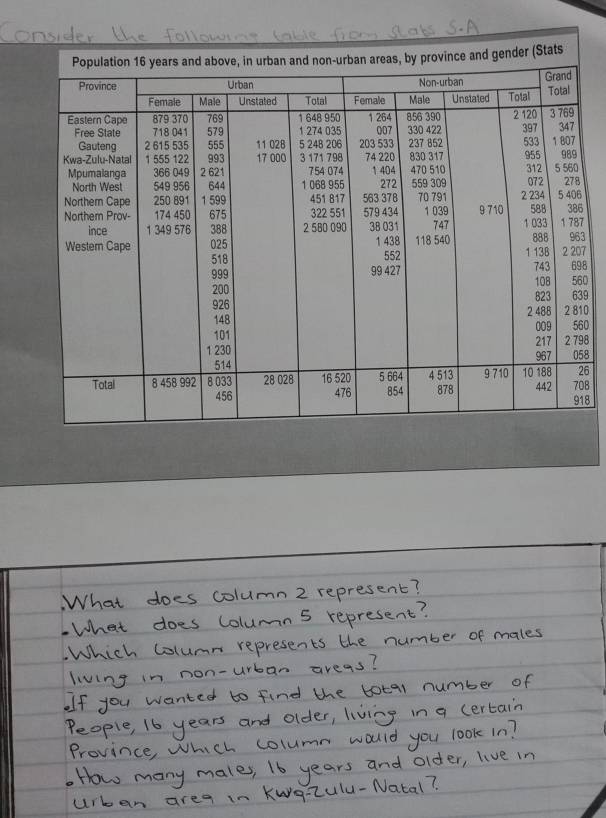 Consider the following table from Stats S.A
Population 16 years and above, in urban and non-urban areas, by province and gender (Stats
Province Urban Non-urban Grand Total
Female Male Unstated Total Female Male Unstated Total
Eastern Cape 879 370 769 1 648 950 1 264 856 390 2 120 3 769
Free State 718 041 579 1 274 035 007 330 422 397 347
Gauteng 2 615 535 555 11 028 5 248 206 203 533 237 852 533 1 807
Kwa-Zulu-Natal 1 555 122 993 17 000 3 171 798 74 220 830 317 955 989
Mpumalanga 366 049 2 621 754 074 1 404 470 510 312 5 560
North West 549 956 644 1 068 955 272 559 309 072 278
Northern Cape 250 891 1 599 451 817 563 378 70 791 2 234 5 406
Northern Prov- 174 450 675 322 551 579 434 1 039 9 710 588 386
ince 1 349 576 388 2 580 090 38 031 747 1 033 1 787
Western Cape 025 1 438 118 540 888 963
518 552 1 138 2 207
999 99 427 743 698
200 108 560
926 823 639
148 2 488 2 810
101 009 560
1 230 217 2 798
514 967 058
Total 8 458 992 8 033 28 028 16 520 5 664 4 513 9 710 10 188 26
456 476 854 878 442 708
918
.What does column 2 represent?
.What does column 5 represent?
.Which column represents the number of males
living in non-urban areas?
.If you wanted to find the total number of
People, 16 years and older, living in a certain
Province, which column would you look in?
.How many males, 16 years and older, live in
urban area in Kwa-Zulu-Natal?